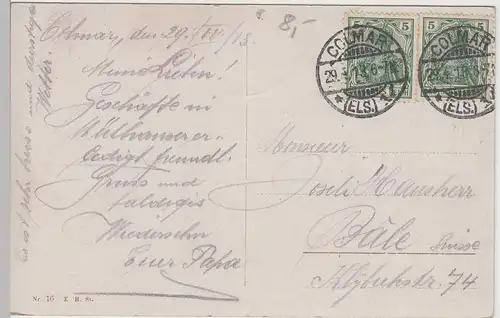 Colmar, den 29./IV/13.
8,-
Meine Lieben!
Geschäfte in
Mülhausen er-
ledigt freundl.
Gruss und
baldiges
Wiedersehn
Euer Papa
Es ist sehr heiss und durstiges
Wetter.
5 5
5 5
COLMAR
29.4.13.6-7
(ELS.)
COLMAR
(ELS.)
Monsieur
Hausherr
Bâle Suisse
Klybeckstr. 74
Nr. 16